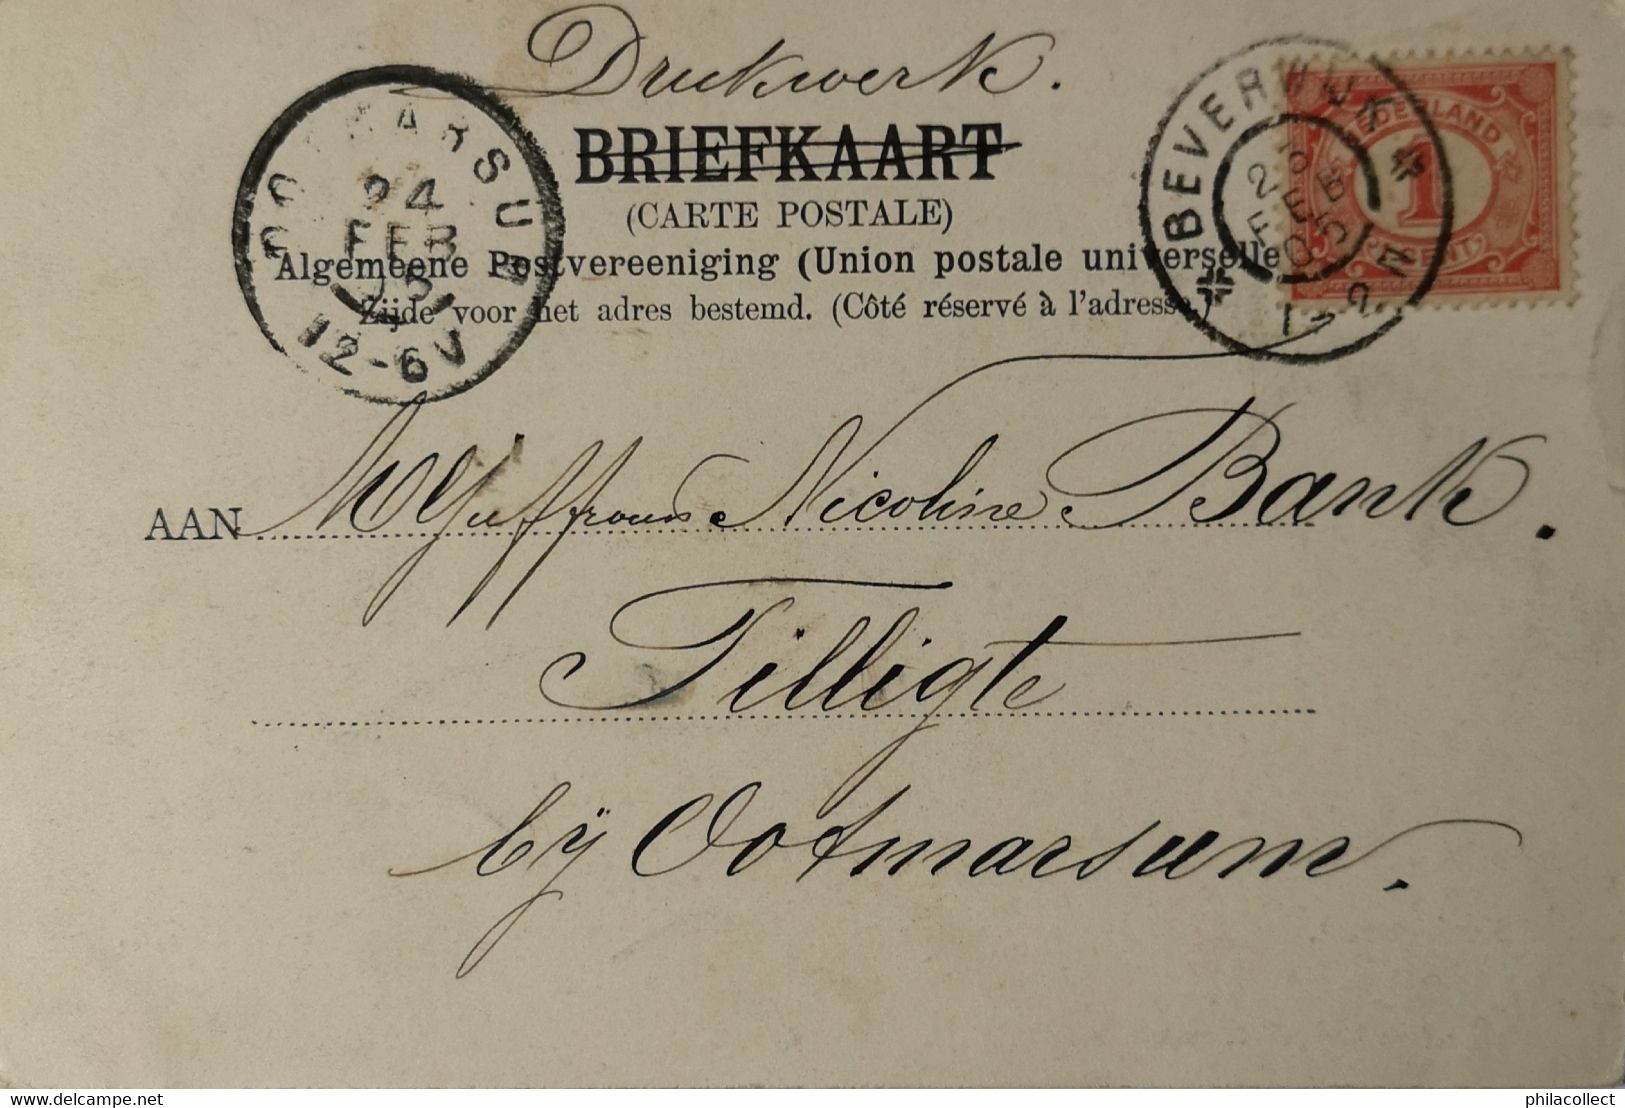 Drukwerk.
BRIEFKAART
(CARTE POSTALE)
Algemeene Postvereeniging (Union postale universelle
Zijde voor het adres bestemd. (Côté réservé à l'adresse.)
24
FEB
12-6V
BEVERWIJK
23 FEB 05
1-2 N
NEDERLAND
1
CENT
AAN Mejuffrouw Nicoline Bank.
Tilligte
bij Ootmarsum.
www.delcampe.net
philacollect